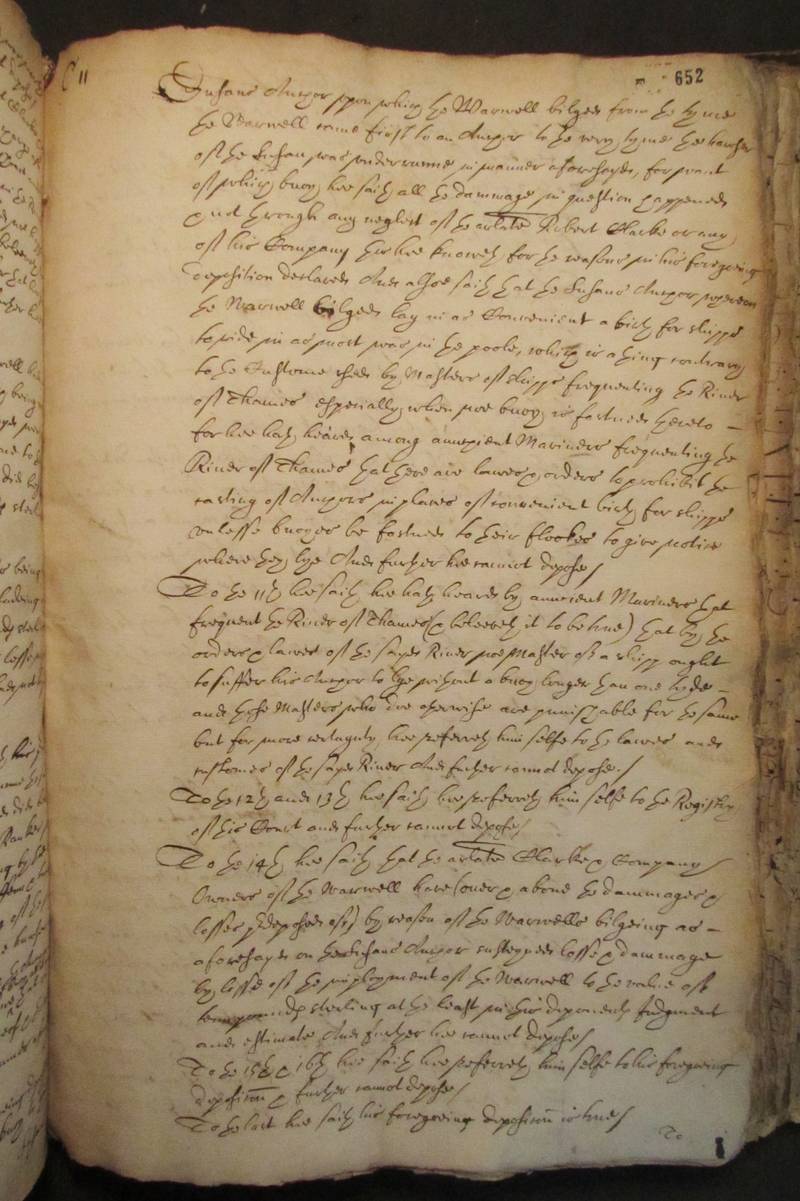 C 11
652
Susans Anchor upon which the Warwell bilged from the tyme
the Warwell came first to an Anchor to the very tyme the
of the Susan was underrunne in manner aforesayd, for want
of which buoy hee saith all the dammage in question happened
& not through any neglect of the arlate Robert Clarke or any
of his Company this hee knoweth for the reasons in his foregoing
deposition declared And alsoe saith that the Susans Anchor whereon
the Warwell bilged lay in as Convenient a birth for shipps
to ride in as most was in the poole, which is a thing contrary
to the Custome used by Masters of shipps frequenting the River
of Thames especially when noe buoy is fastned thereto –
for hee hath heard among auncient Mariners frequenting the
River of Thames that there are lawes & orders to prohibit the
casting of Anchors in places of convenient birth for shipps
unlesse buoyes be fastned to their flookes to give notice
where they lye And further hee cannot depose/
To the 11th hee saith hee hath heard by auncient Mariners that
frequent the River of Thames (& beleeveth it to be true) that by the
orders & lawes of the sayd River noe Master of a shipp ought
to suffer his Anchor to lye without a buoy longer than one tyde –
and those Masters who doe otherwise are punishable for the same
but for more certaynty hee referreth him selfe to the lawes and
customes of the sayd River And further cannot depose./
To the 12th and 13th hee saith hee referreth him selfe to the Registry
of this Court and further cannot depose/
To the 14th hee saith that the arlate Clarke & Company
Owners of the Warwell have (over & above the dammages &
losses predeposed of) by reason of the Warwells bilgeing as –
aforesayd on the Susans Anchor susteyned losse & dammage
by losse of the imployment of the Warwell to the value of
pounds sterling at the least in this deponents Judgment
and estimate And further hee cannot depose/
To the 15th & 16th hee saith hee referreth him selfe to his foregoeing
deposition & further cannot depose/
To the last hee saith his foregoeing deposition is true/
To